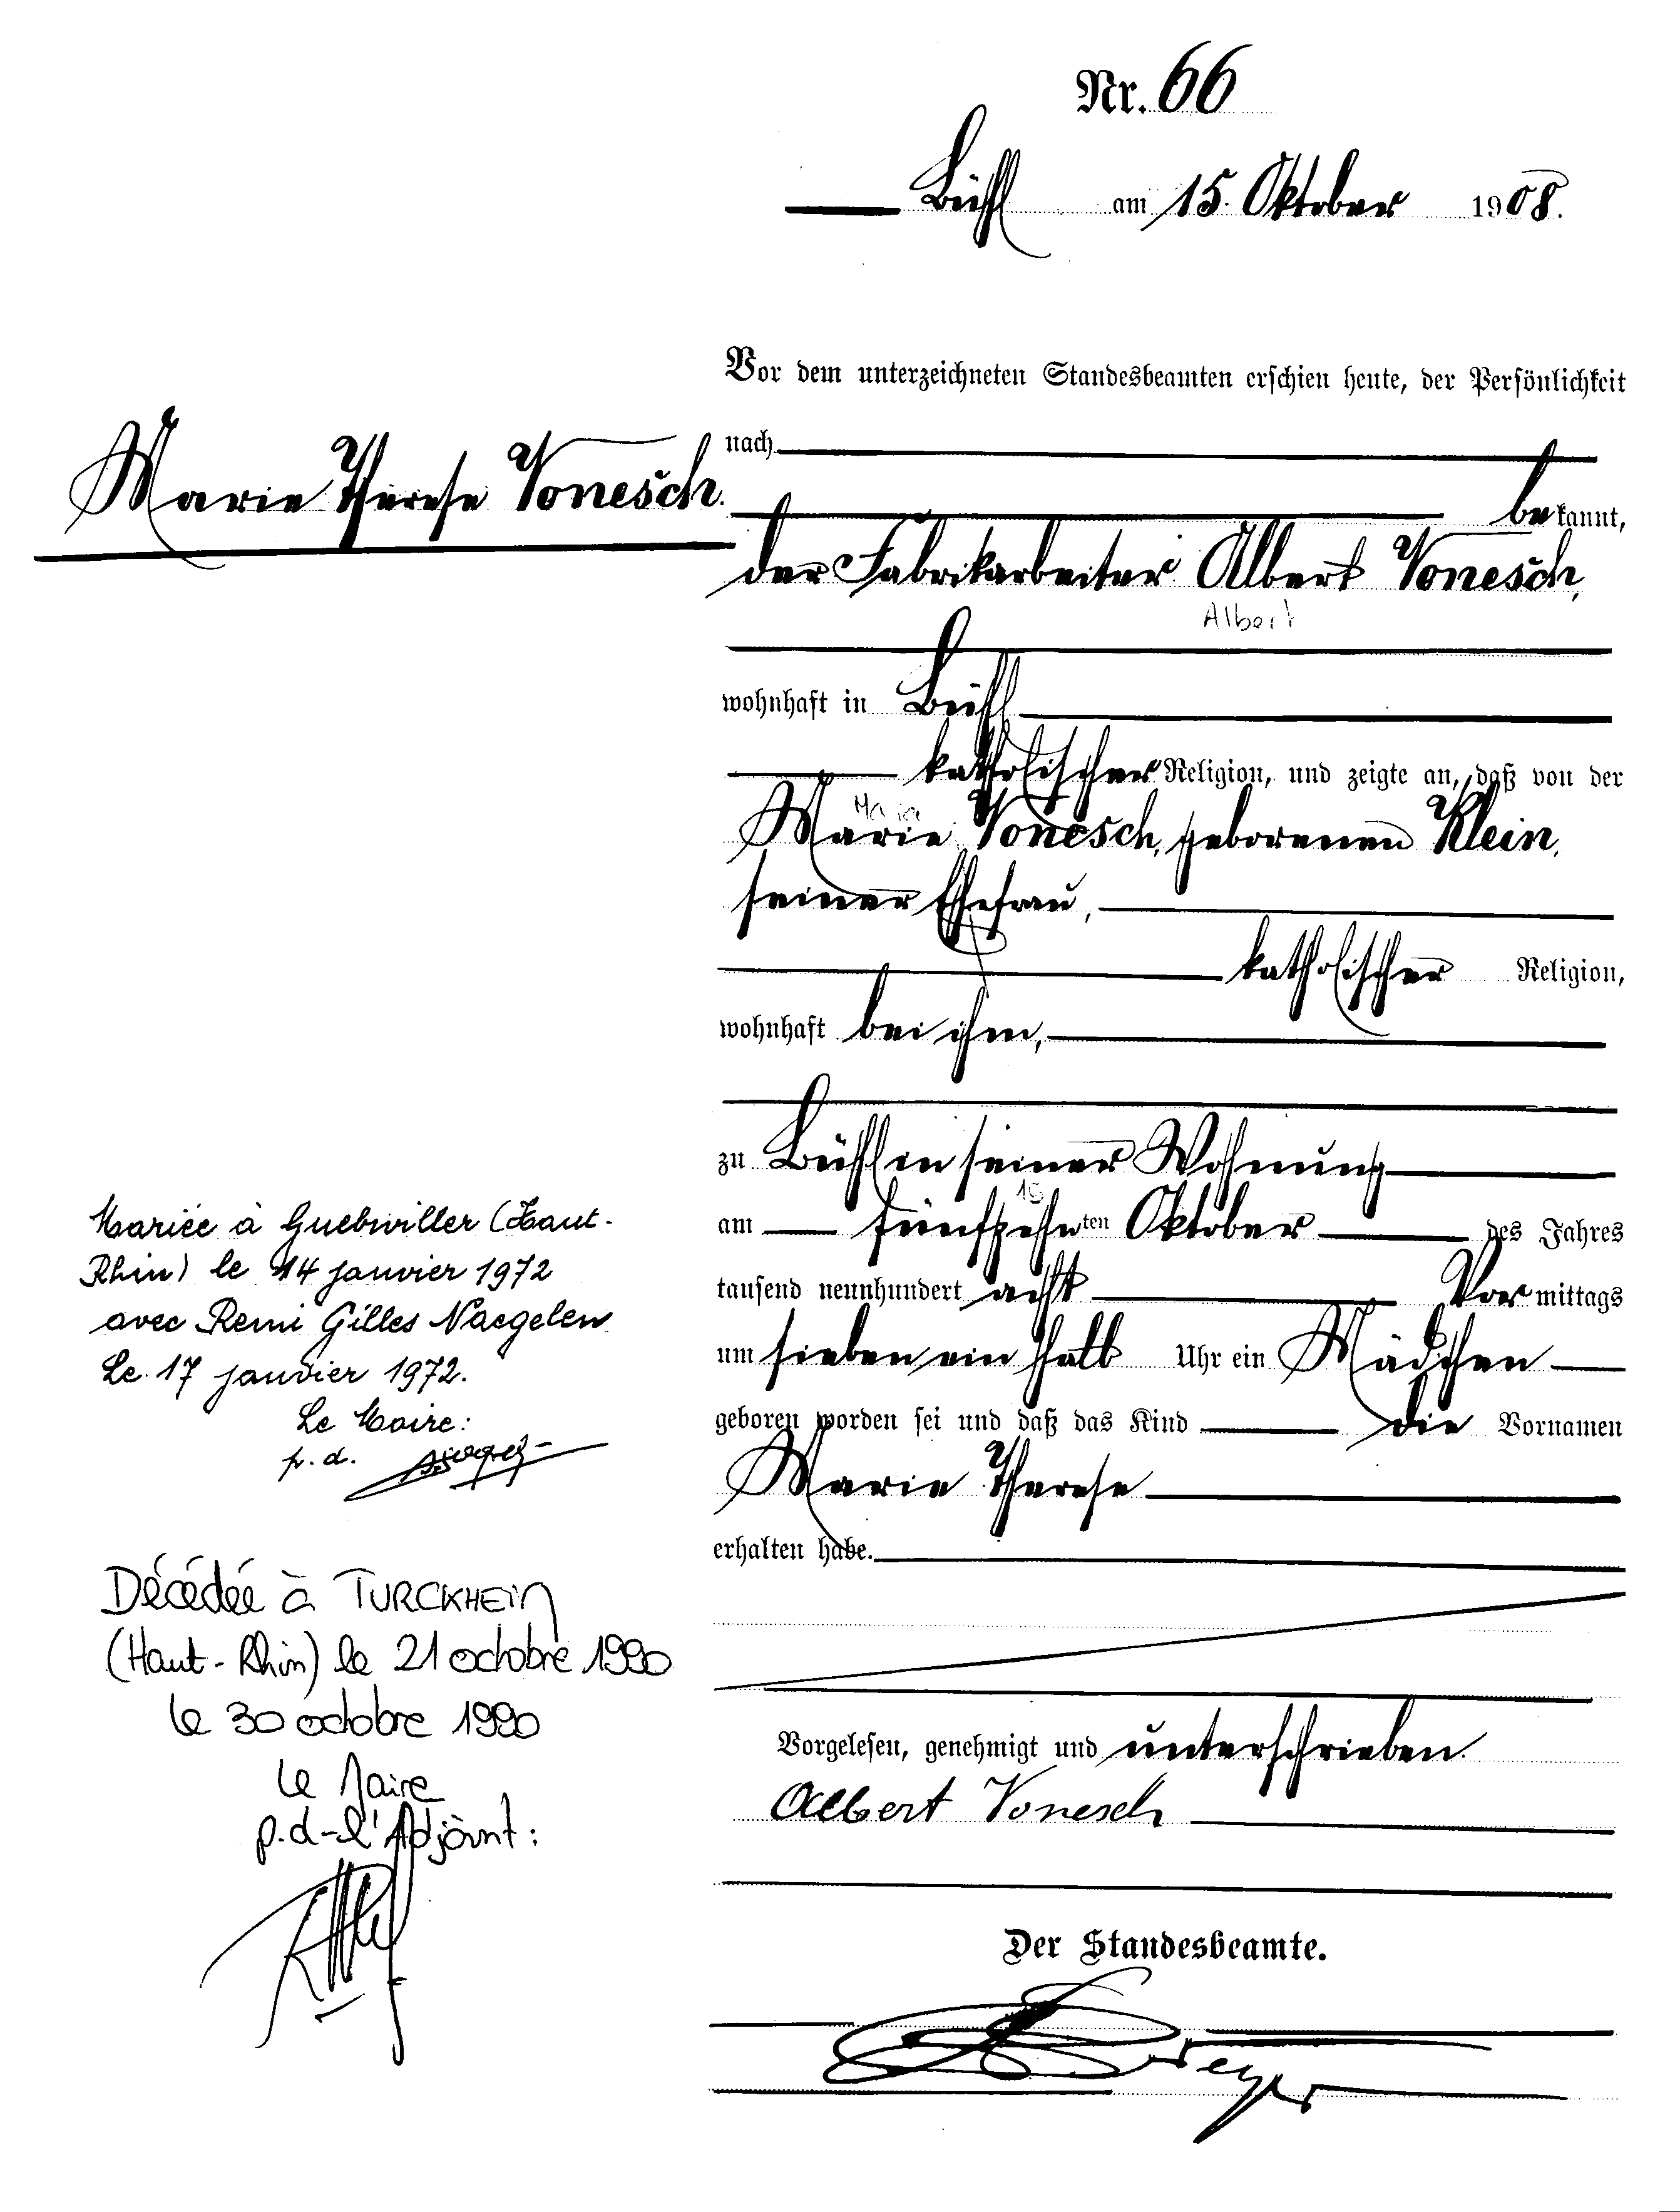 Nr. 66
Bühl am 15. Oktober 1908.
Vor dem unterzeichneten Standesbeamten erschien heute, der Persönlichkeit
nach
Marie Therese Vonesch.
bekannt,
der Fabrikarbeiter Albert Vonesch,
Albert
wohnhaft in Bühl
katholischer Religion, und zeigte an, daß von der
Maria
Marie Vonesch, geborenen Klein,
seiner Ehefrau,
katholischer Religion,
wohnhaft bei ihm,
zu Bühl in seiner Wohnung
15
am fünfzehnten Oktober des Jahres
tausend neunhundert acht Vormittags
um sieben ein halb Uhr ein Mädchen
geboren worden sei und daß das Kind die Vornamen
Marie Therese
erhalten habe.
Vorgelesen, genehmigt und unterschrieben.
Albert Vonesch
Der Standesbeamte.
Mariée à Guebwiller (Haut-
Rhin) le 14 janvier 1972
avec Remi Gilles Naegelen
Le 17 janvier 1972.
Le Maire:
p. d.
Décédée à TURCKHEIM
(Haut-Rhin) le 21 octobre 1990
le 30 octobre 1990
le Maire
p.d-l'Adjoint: